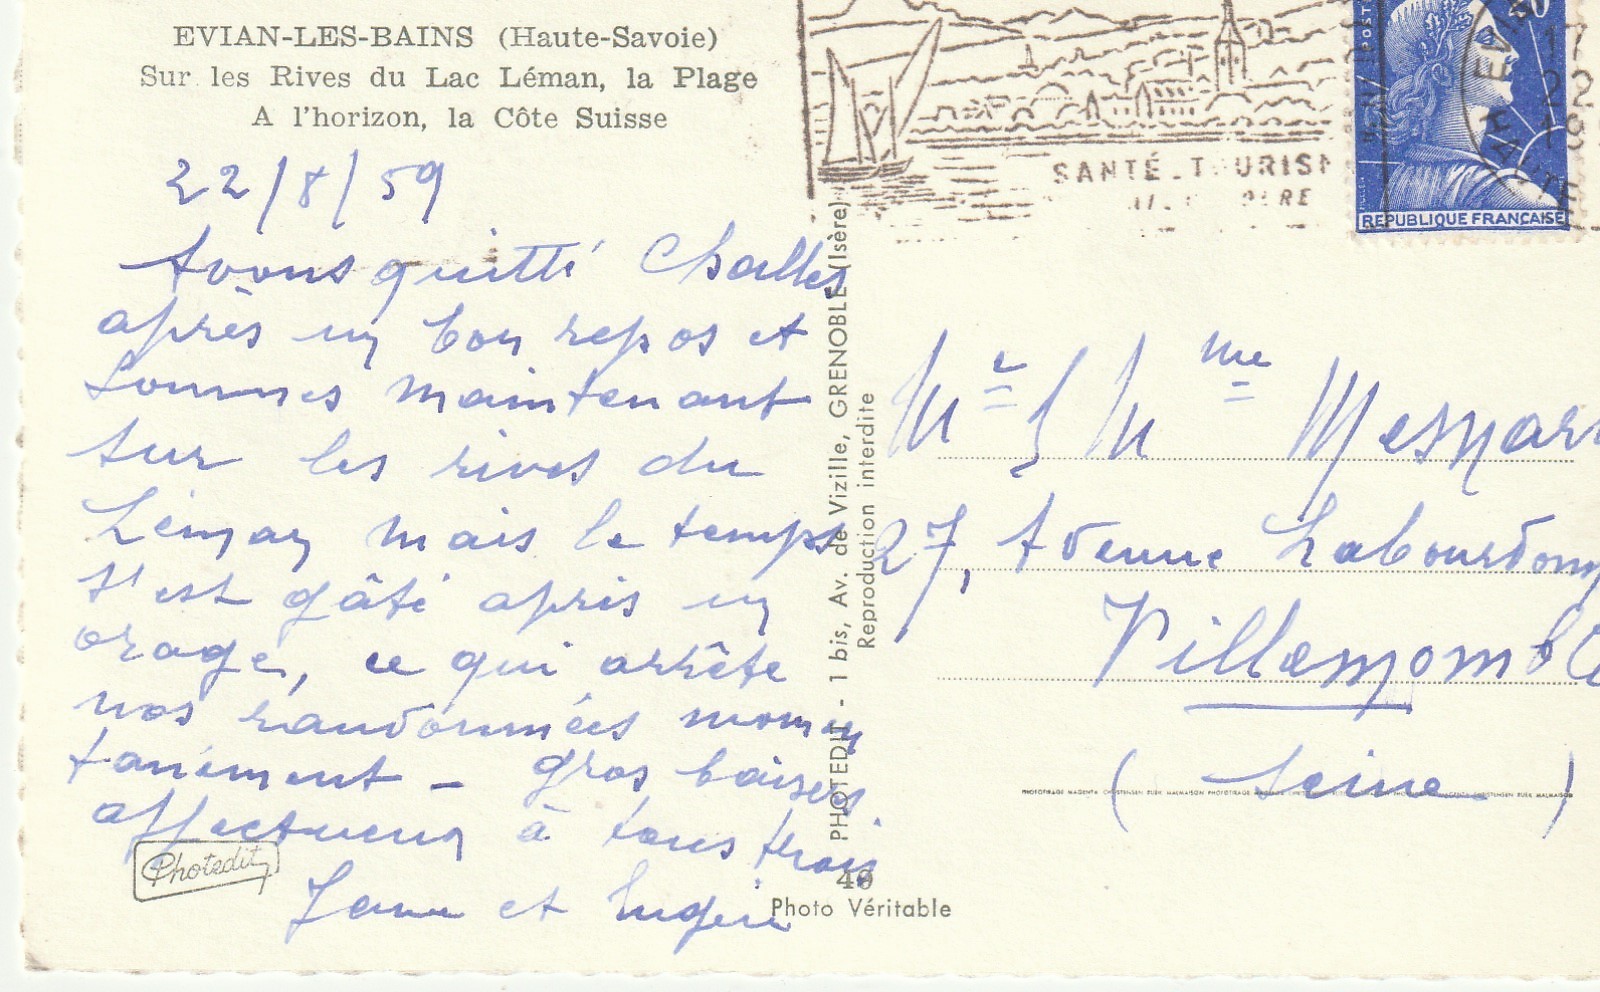 EVIAN-LES-BAINS (Haute-Savoie)
Sur les Rives du Lac Léman, la Plage
A l'horizon, la Côte Suisse
22/8/59
Avons quitté Challes
après un bon repos et
sommes maintenant
sur les rives du
Léman mais le temps
s'est gâté après un
orage, ce qui arrête
nos randonnées momen
tanément - gros baisers
affectueux à tous trois
et
Photedit
PHOTEDIT - 1 bis, Av. de Vizille, GRENOBLE (Isère)
Reproduction interdite
40
Photo Véritable
SANTÉ_TOURISM
REPUBLIQUE FRANÇAISE
POST
EVIAN
HAUTE
17
22
19
Mr & Mme Mesnar
27, Avenue Labourdonn
Villemomble
(Seine)